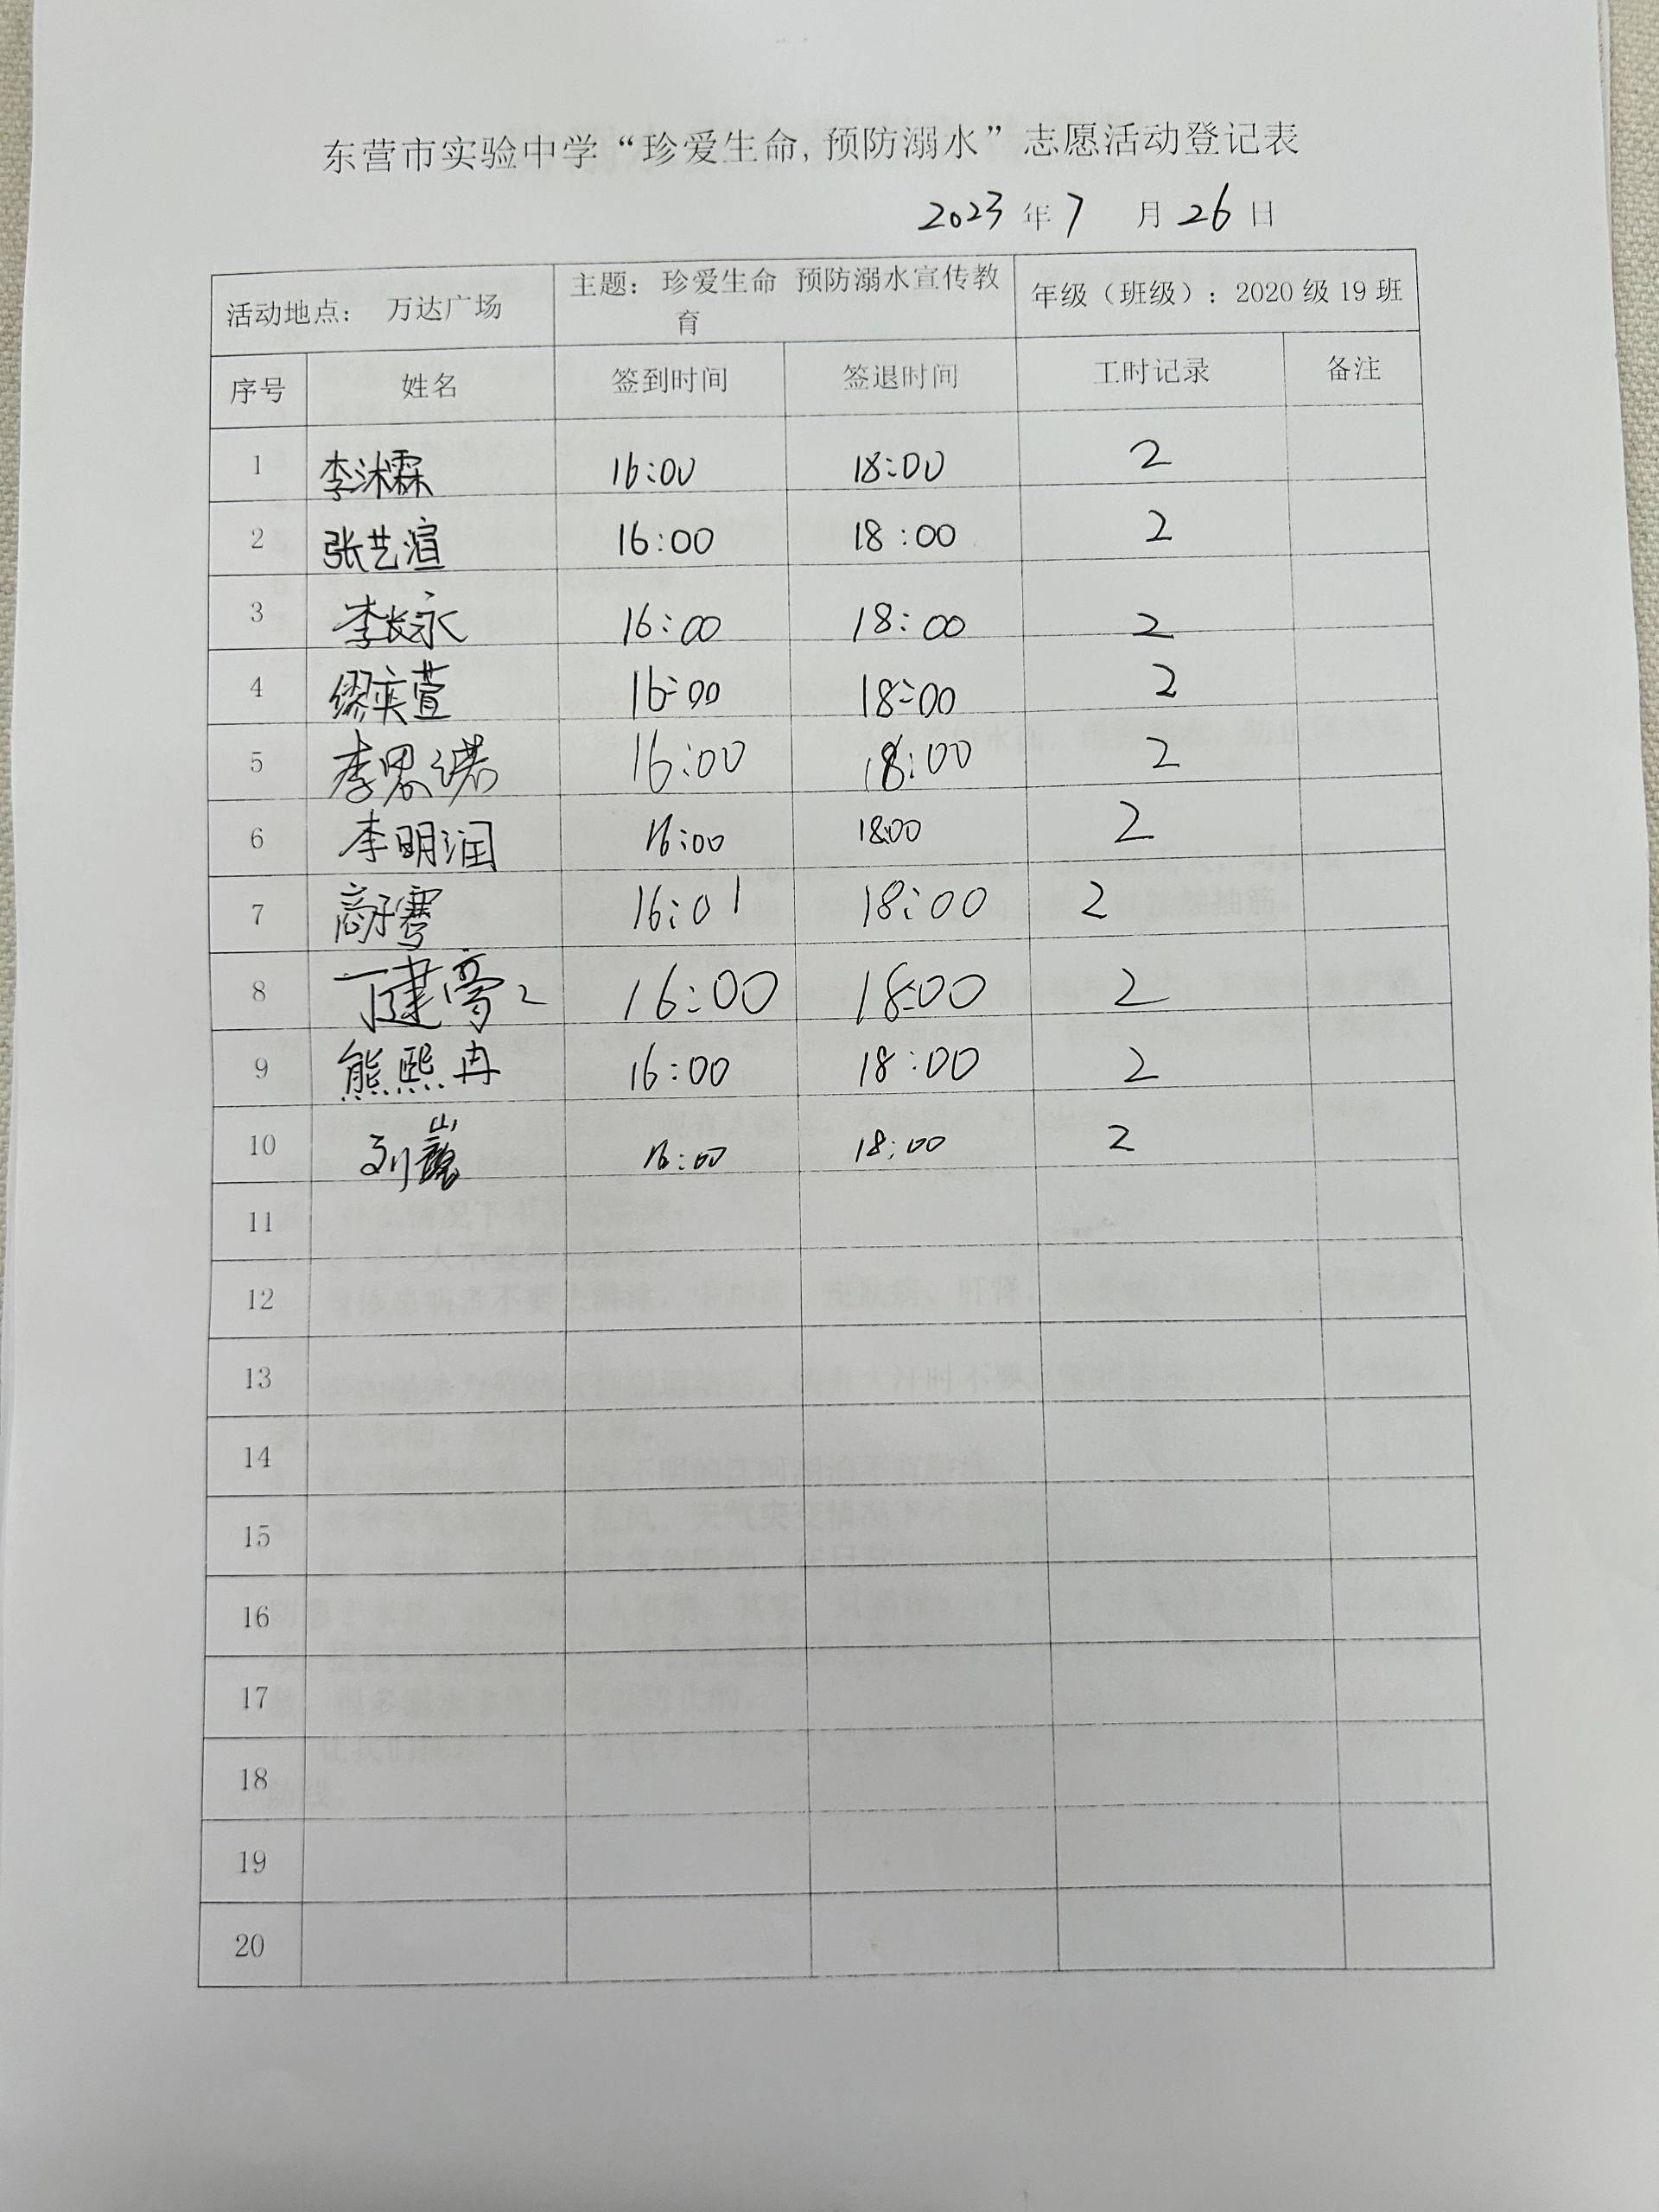 东营市实验中学“珍爱生命,预防溺水”志愿活动登记表
2023 年 7 月 26 日
活动地点： 万达广场 主题：珍爱生命 预防溺水宣传教 年级（班级）：2020 级 19 班
育
序号 姓名 签到时间 签退时间 工时记录 备注
1 李沐霖 16:00 18:00 2
2 张艺渲 16:00 18:00 2
3 李长永 16:00 18:00 2
4 缪奕萱 16:00 18:00 2
5 李思诺 16:00 18:00 2
6 李明润 16:00 18:00 2
7 16:01 18:00 2
8 16:00 18:00 2
9 熊熙冉 16:00 18:00 2
10 16:00 18:00 2
11
12
13
14
15
16
17
18
19
20